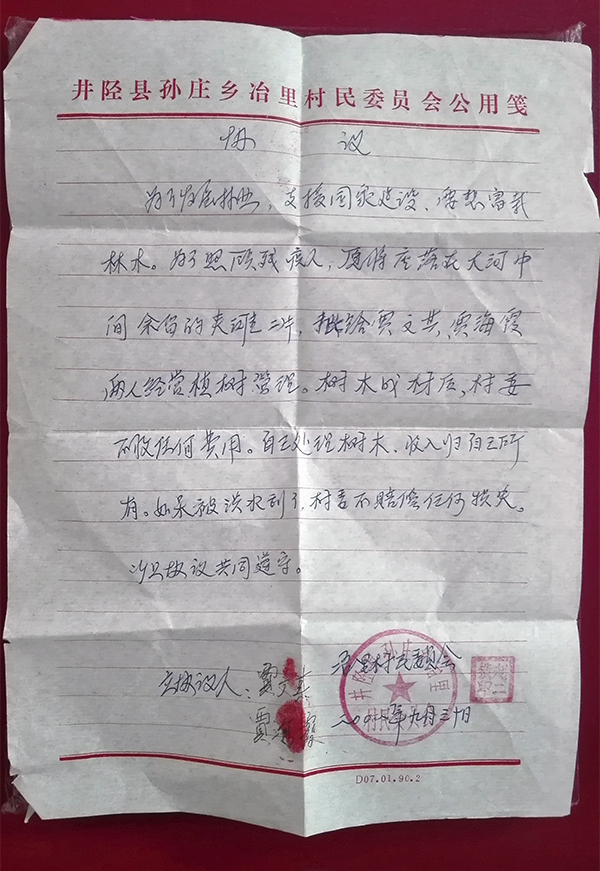 井陉县孙庄乡冶里村民委员会公用笺
协 议
为了发展林业，支援国家建设，要想富栽
林木。为了照顾残疾人，愿将座落在大河中
间余留的夹滩二片，批给贾文其、贾海霞
两人经营植树管理。树木成材后，村委
不收任何费用。自己处理树木，收入归自己所
有。如果被洪水刮了，村委不赔偿任何损失。
此协议共同遵守。
立协议人：贾文其 冶里村民委员会
贾海霞 年九月三十日
D07.01.90.2